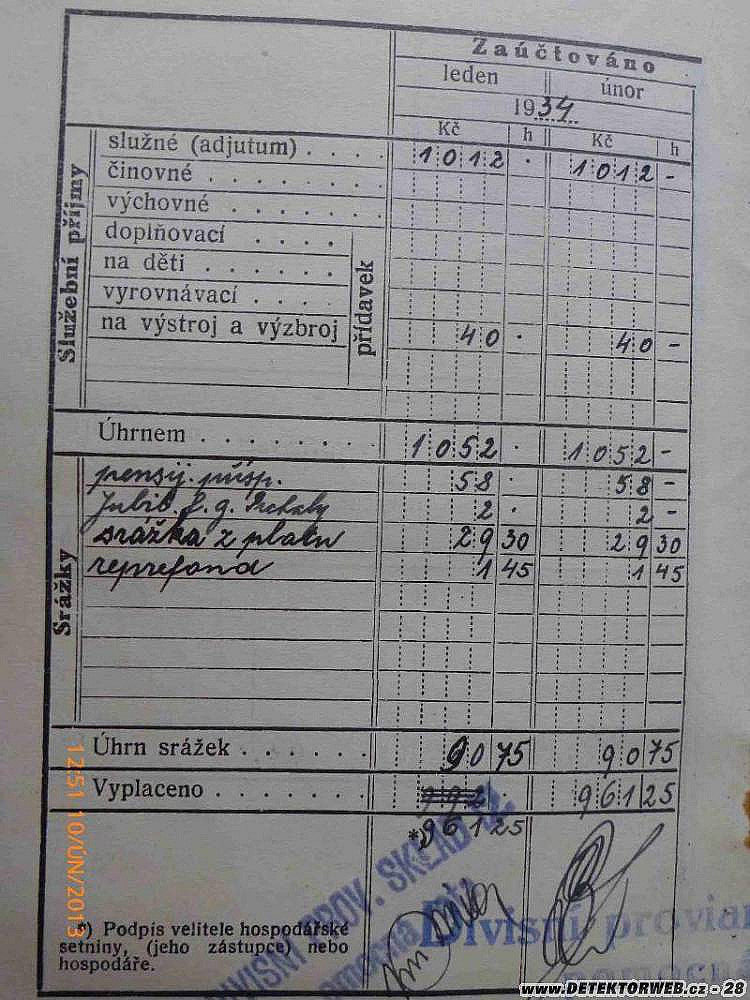 Zaúčtováno
leden únor
1934
Kč h Kč h
Služební příjmy
služné (adjutum) . . . . 1012 · 1012 -
činovné . . . . . . . .
výchovné . . . . . . .
přídavek
doplňovací . . . .
na děti . . . . . .
vyrovnávací . . . .
na výstroj a výzbroj 40 · 40 -
Úhrnem . . . . . . . . 1052 · 1052 -
Srážky
pensij. přísp. 58 · 58 -
Jubil. f. g. 2 · 2 -
srážka z platu 29 30 29 30
reprefond 1 45 1 45
Úhrn srážek . . . . . . 90 75 90 75
Vyplaceno . . . . . . . 961 25
*) 961 25
*) Podpis velitele hospodářské
setniny, (jeho zástupce) nebo
hospodáře.
DIVISNÍ PROV. SKLAD
Divisní provian
12:51 10/ÚN/2013
www.DETEKTORWEB.cz - 28